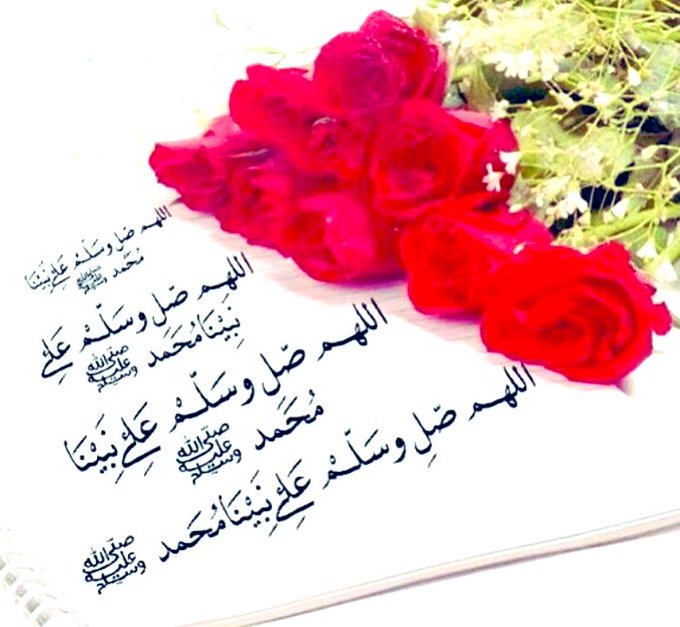 اللهم صل وسلم علے نبينا
محمد ﷺ
اللهم صل وسلم علے
نبينا محمد ﷺ
اللهم صل وسلم علے نبينا
محمد ﷺ
اللهم صل وسلم علے نبينا محمد ﷺ